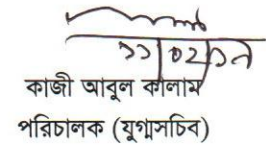 ১১/০২/১৯
কাজী আবুল কালাম
পরিচালক (যুগ্মসচিব)